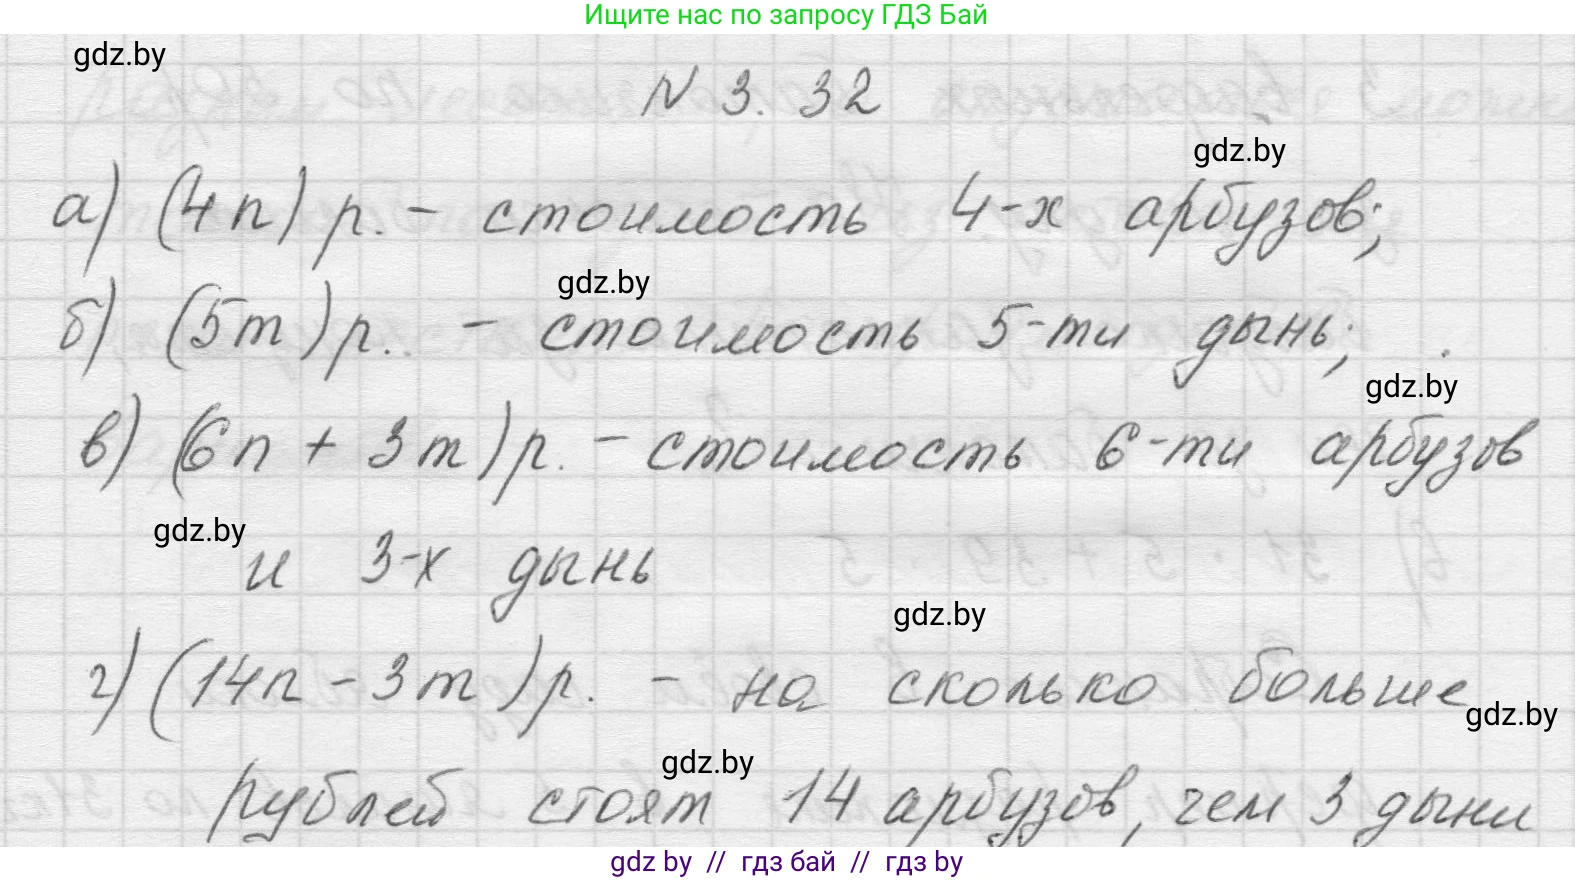 Ищите нас по запросу ГДЗ Бай
gdz.by
N 3. 32
gdz.by
а) (4n) р. - стоимость 4-х арбузов;
gdz.by
б) (5m) р. - стоимость 5-ти дынь;
gdz.by
в) (6n + 3m) р. - стоимость 6-ти арбузов
gdz.by
и 3-х дынь
gdz.by
г) (14n - 3m) р. - на сколько больше
gdz.by
gdz.by
рублей стоят 14 арбузов, чем 3 дыни
gdz by // гдз бай // гдз by